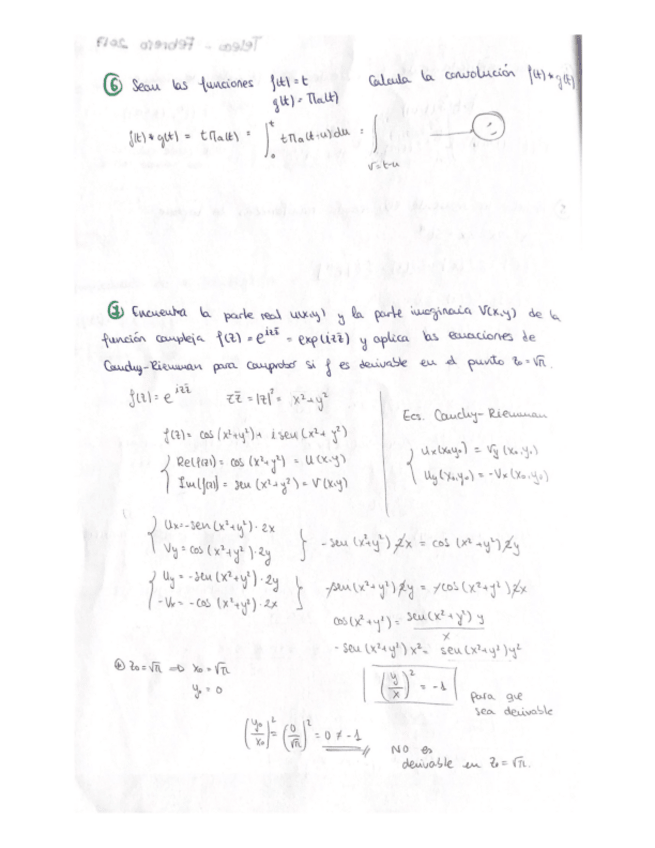 ⑥ Sean las funciones f(t) = t Calcula la convolución f(t) * g(t)
g(t) = Πa(t)
f(t) * g(t) = tΠa(t) = ∫₀ᵗ tΠa(t-u)du = ∫
v = t-u
⑦ Encuentra la parte real u(x,y) y la parte imaginaria V(x,y) de la
función compleja f(z) = e^{izz̄} = exp(izz̄) y aplica las ecuaciones de
Cauchy-Riemman para comprobar si f es derivable en el punto z₀ = √π.
f(z) = e^{izz̄} zz̄ = |z|² = x² + y²
Ecs. Cauchy-Riemman
f(z) = cos(x²+y²) + i sen(x²+y²)
Re(f(z)) = cos(x²+y²) = u(x,y)
Im(f(z)) = sen(x²+y²) = V(x,y)
ux(x₀,y₀) = Vy(x₀,y₀)
uy(x₀,y₀) = -Vx(x₀,y₀)
Ux = -sen(x²+y²)·2x
Vy = cos(x²+y²)·2y
-sen(x²+y²) 2x = cos(x²+y²) 2y
Uy = -sen(x²+y²)·2y
-Vx = -cos(x²+y²)·2x
-sen(x²+y²) 2y = -cos(x²+y²) 2x
cos(x²+y²) = sen(x²+y²) y / x
-sen(x²+y²) x² = sen(x²+y²) y²
z₀ = √π ⇒ x₀ = √π
y₀ = 0
(y/x)² = -1
para que
sea derivable
(y₀/x₀)² = (0/√π)² = 0 ≠ -1
NO es
derivable en z₀ = √π.